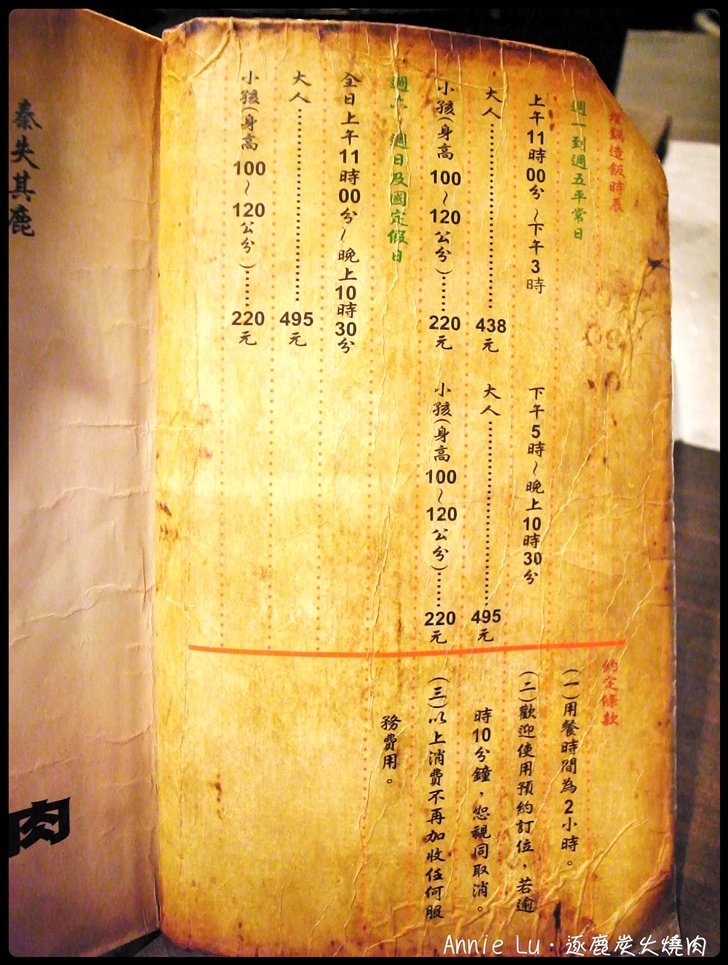 埋鍋造飯時辰
週一到週五平常日
上午11時00分~下午3時
大人……………………438元
小孩(身高100~120公分)……220元
下午5時~晚上10時30分
大人……………………495元
小孩(身高100~120公分)……220元
週六、週日及國定假日
全日上午11時00分~晚上10時30分
大人……………………495元
小孩(身高100~120公分)……220元
約定條款
(一)用餐時間為2小時。
(二)歡迎使用預約訂位,若逾
時10分鐘,恕視同取消。
(三)以上消費不再加收任何服
務費用。
秦失其鹿
肉
Annie Lu·逐鹿炭火燒肉